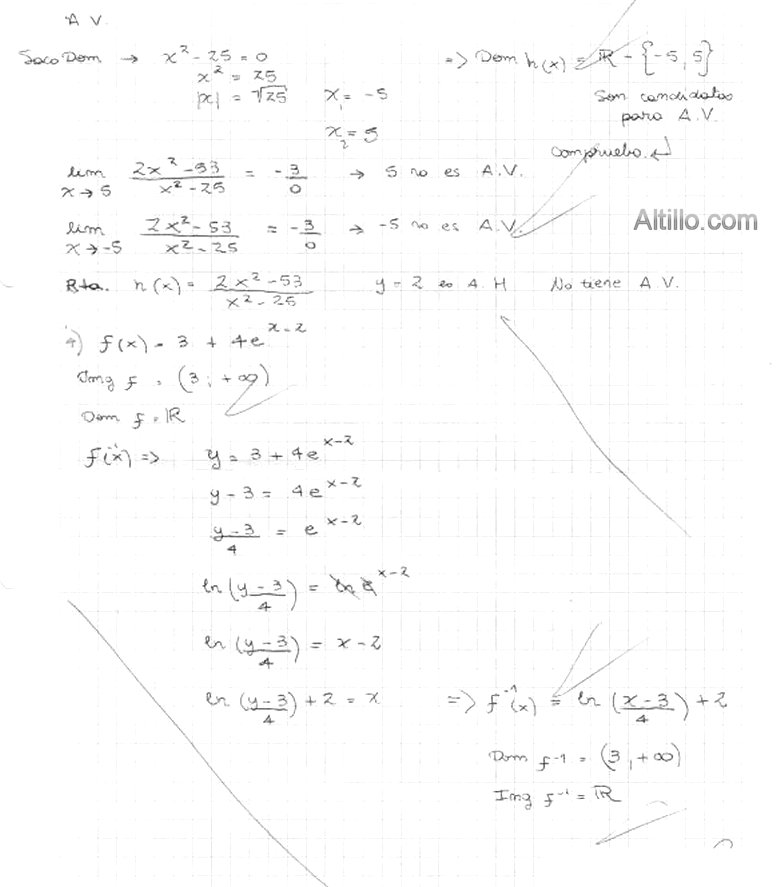 A V.
Saco Dom → x² - 25 = 0 => Dom h(x) = ℝ - {-5, 5}
x² = 25
|x| = √25 x₁ = -5 Son candidatos
x₂ = 5 para A.V.
compruebo ↵
lim x→5 (2x² - 53)/(x² - 25) = -3/0 → 5 no es A.V.
Altillo.com
lim x→-5 (2x² - 53)/(x² - 25) = -3/0 → -5 no es A.V.
Rta. h(x) = (2x² - 53)/(x² - 25) y = 2 es A.H No tiene A.V.
4) f(x) = 3 + 4e^(x-2)
Img f = (3; +∞)
Dom f = ℝ
f⁻¹(x) => y = 3 + 4e^(x-2)
y - 3 = 4e^(x-2)
(y-3)/4 = e^(x-2)
ln((y-3)/4) = ln e^(x-2)
ln((y-3)/4) = x - 2
ln((y-3)/4) + 2 = x => f⁻¹(x) = ln((x-3)/4) + 2
Dom f⁻¹ = (3, +∞)
Img f⁻¹ = ℝ